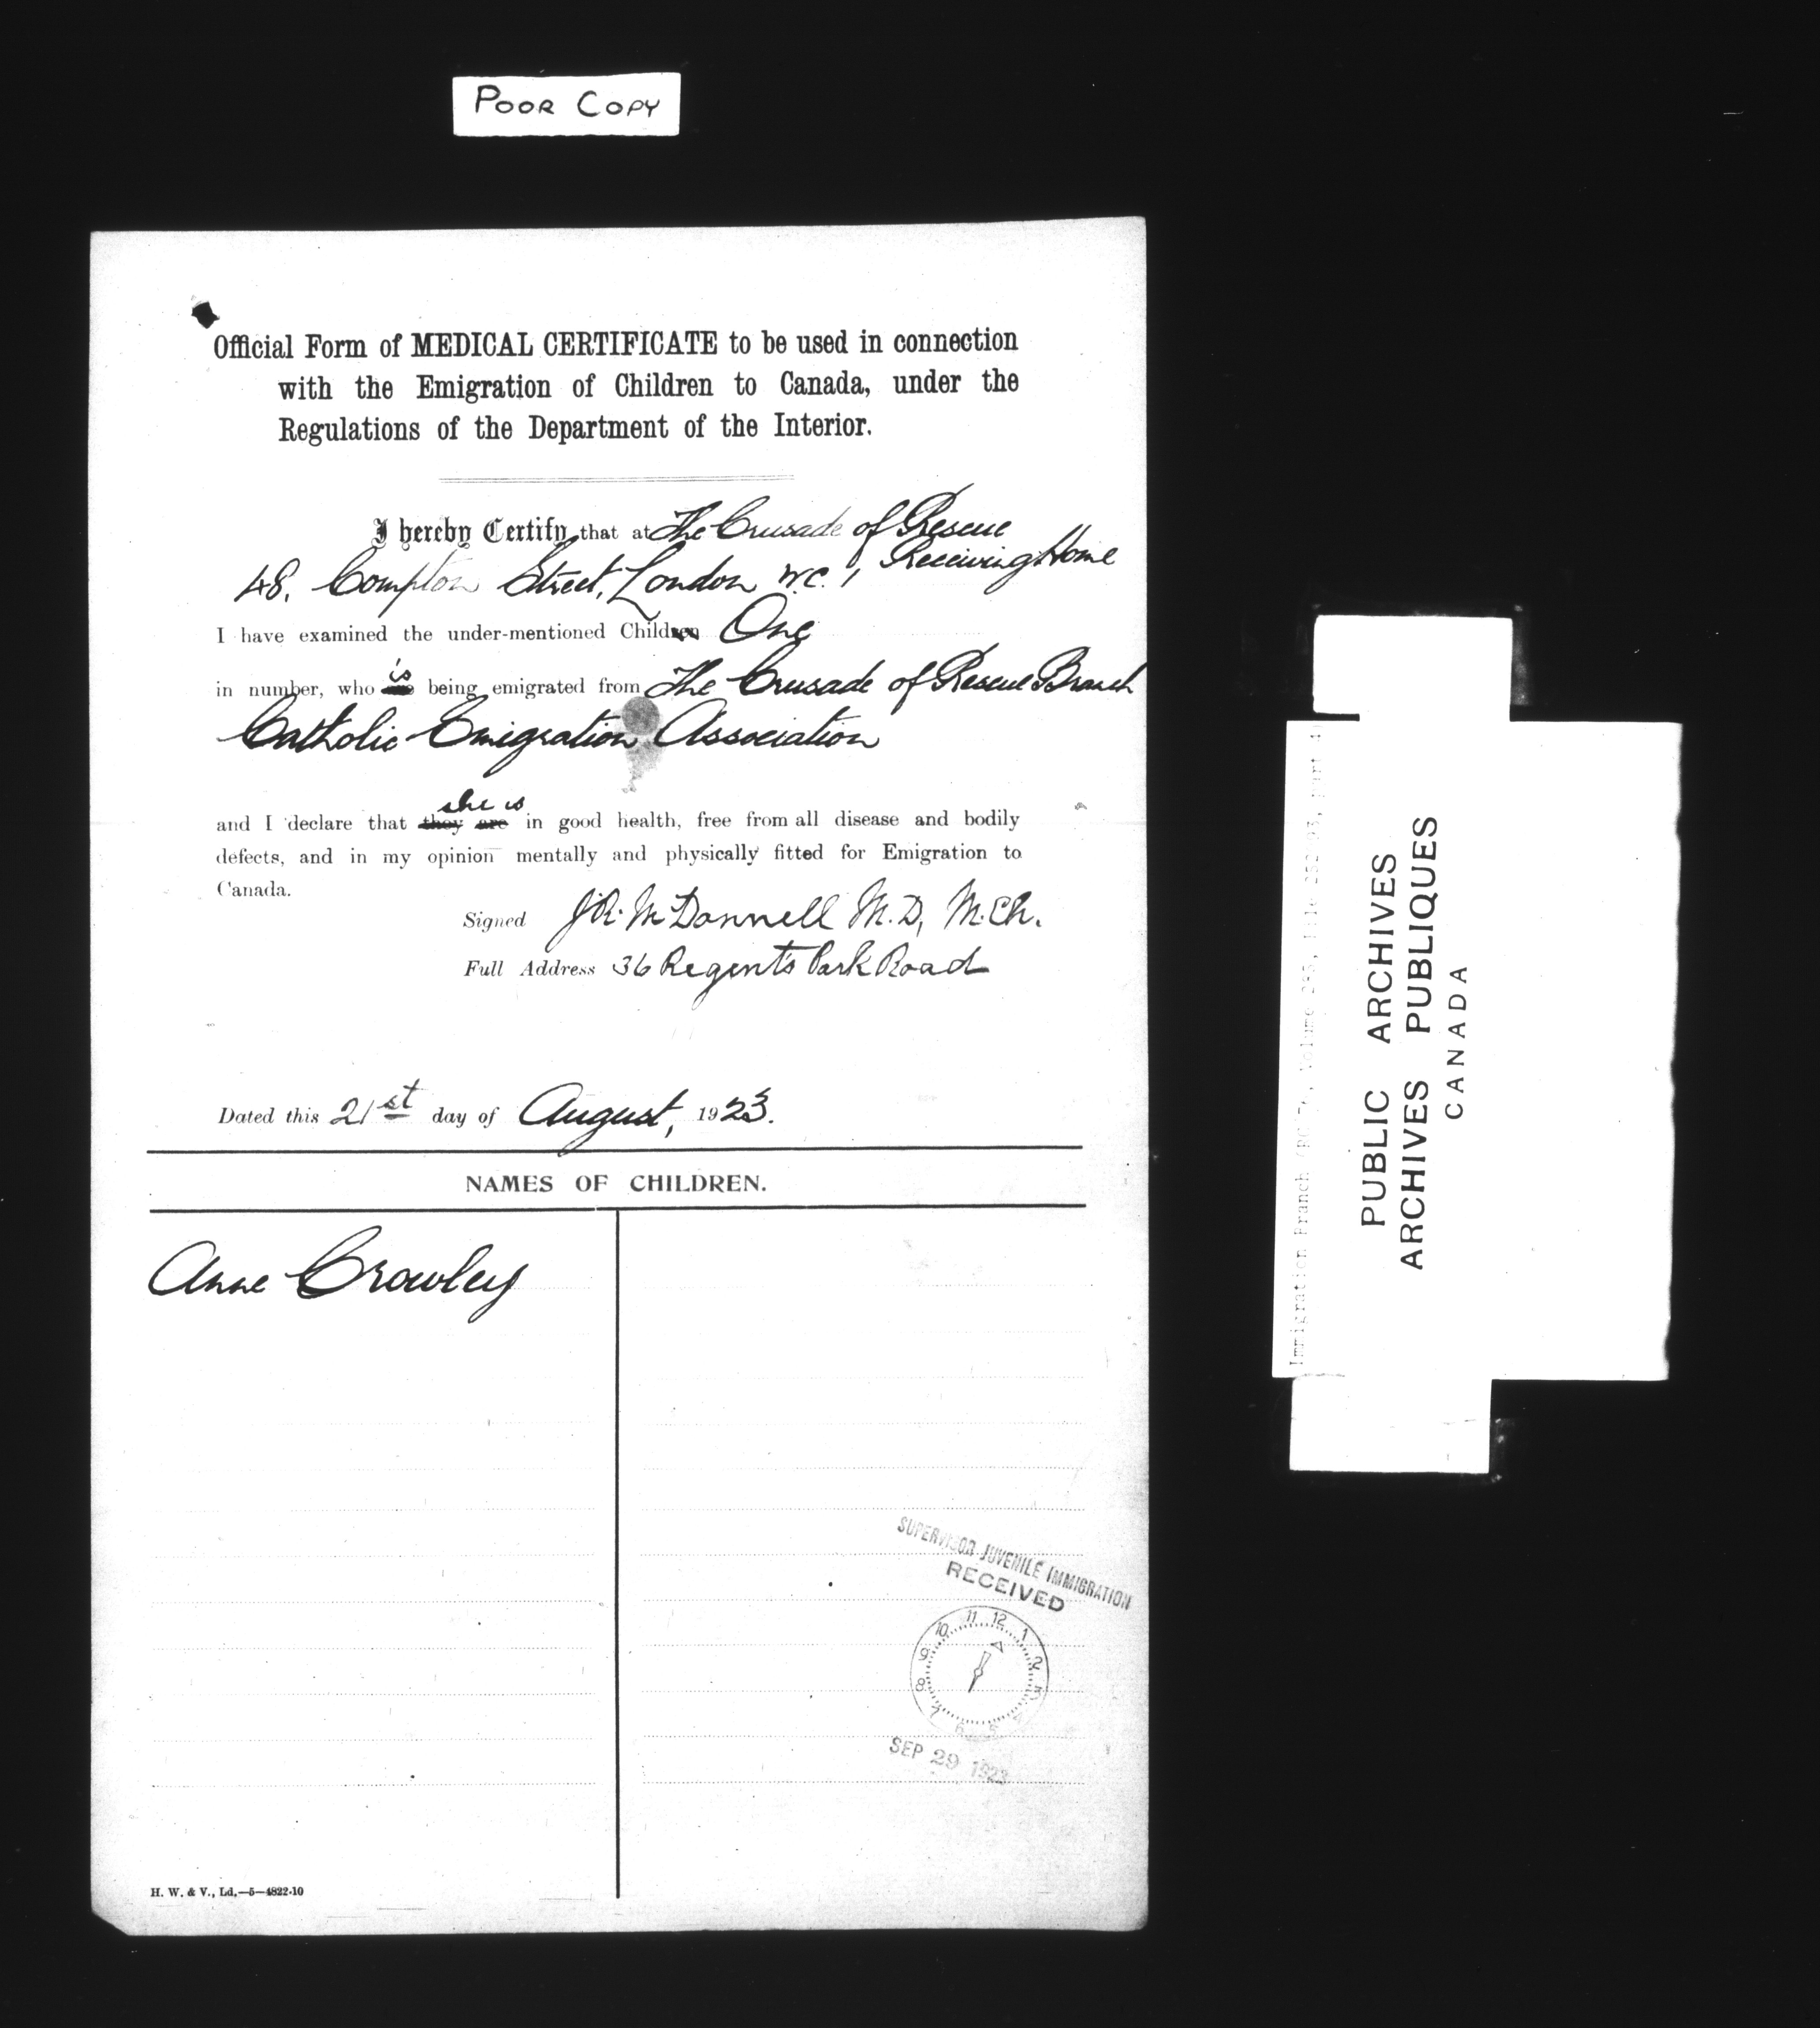 POOR COPY
Official Form of MEDICAL CERTIFICATE to be used in connection
with the Emigration of Children to Canada, under the
Regulations of the Department of the Interior.
I hereby Certify that at The Crusade of Rescue
Receiving Home
48, Compton Street, London W.C. 1
I have examined the under-mentioned Children One
is
in number, who are being emigrated from The Crusade of Rescue Branch
Catholic Emigration Association
she is
and I declare that they are in good health, free from all disease and bodily
defects, and in my opinion mentally and physically fitted for Emigration to
Canada.
Signed J.R. McDonnell M.D, M.Ch.
Full Address 36 Regent's Park Road
Dated this 21st day of August, 1923.
NAMES OF CHILDREN.
Anne Crowley
SUPERVISOR JUVENILE IMMIGRATION
RECEIVED
11 12 1 2 3 4 5 6 7 8 9 10
SEP 29 1923
H. W. & V., Ld.—5—4822-10
Immigration Branch
PUBLIC ARCHIVES
ARCHIVES PUBLIQUES
CANADA